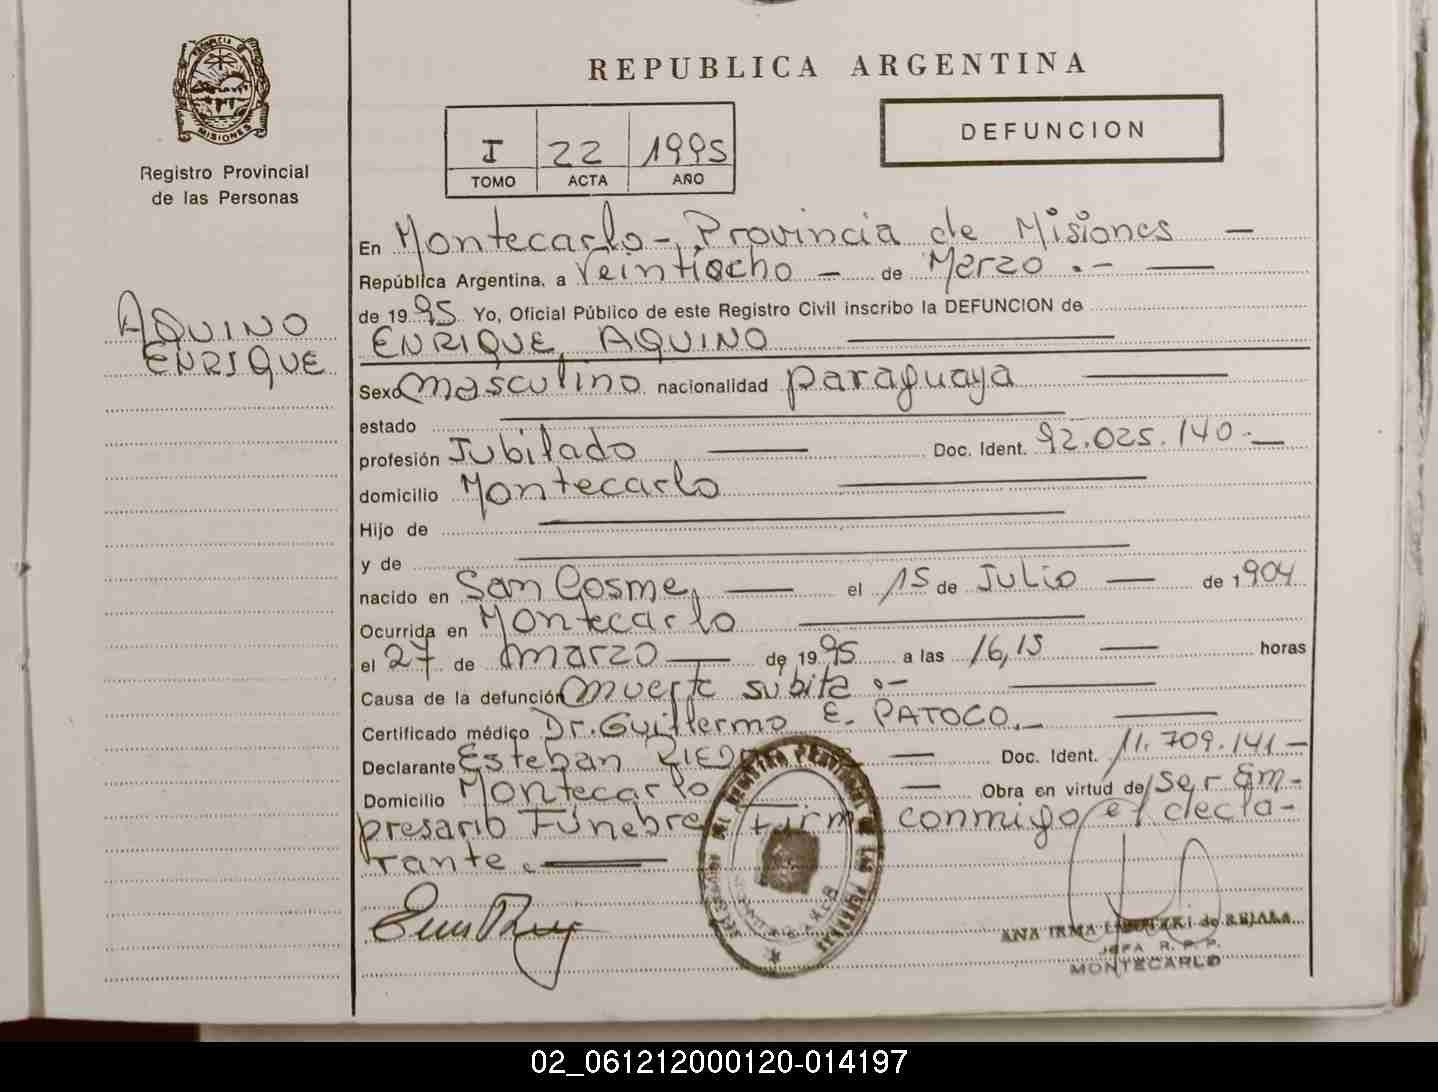 REPUBLICA ARGENTINA
PROVINCIA DE
MISIONES
Registro Provincial
de las Personas
I 22 1995
TOMO ACTA AÑO
DEFUNCION
AQUINO
ENRIQUE
En Montecarlo-, Provincia de Misiones —
República Argentina, a Veintiocho — de Marzo .- —
de 1995 Yo, Oficial Público de este Registro Civil inscribo la DEFUNCION de
ENRIQUE AQUINO —
Sexo masculino nacionalidad paraguaya —
estado —
profesión Jubilado — Doc. Ident. 92.025.140.—
domicilio Montecarlo —
Hijo de —
y de —
nacido en San Cosme, — el 15 de Julio — de 1904
Ocurrida en Montecarlo —
el 27 de marzo — de 1995 a las 16,15 — horas
Causa de la defunción muerte súbita .- —
Certificado médico Dr. Guillermo E. PATOCO.— —
Declarante Esteban — Doc. Ident. 11.709.141—
Domicilio Montecarlo — Obra en virtud de Ser Em-
presario Fúnebre conmigo el decla-
rante. —
ANA IRMA de
JEFA R. P. P.
MONTECARLO
02_061212000120-014197